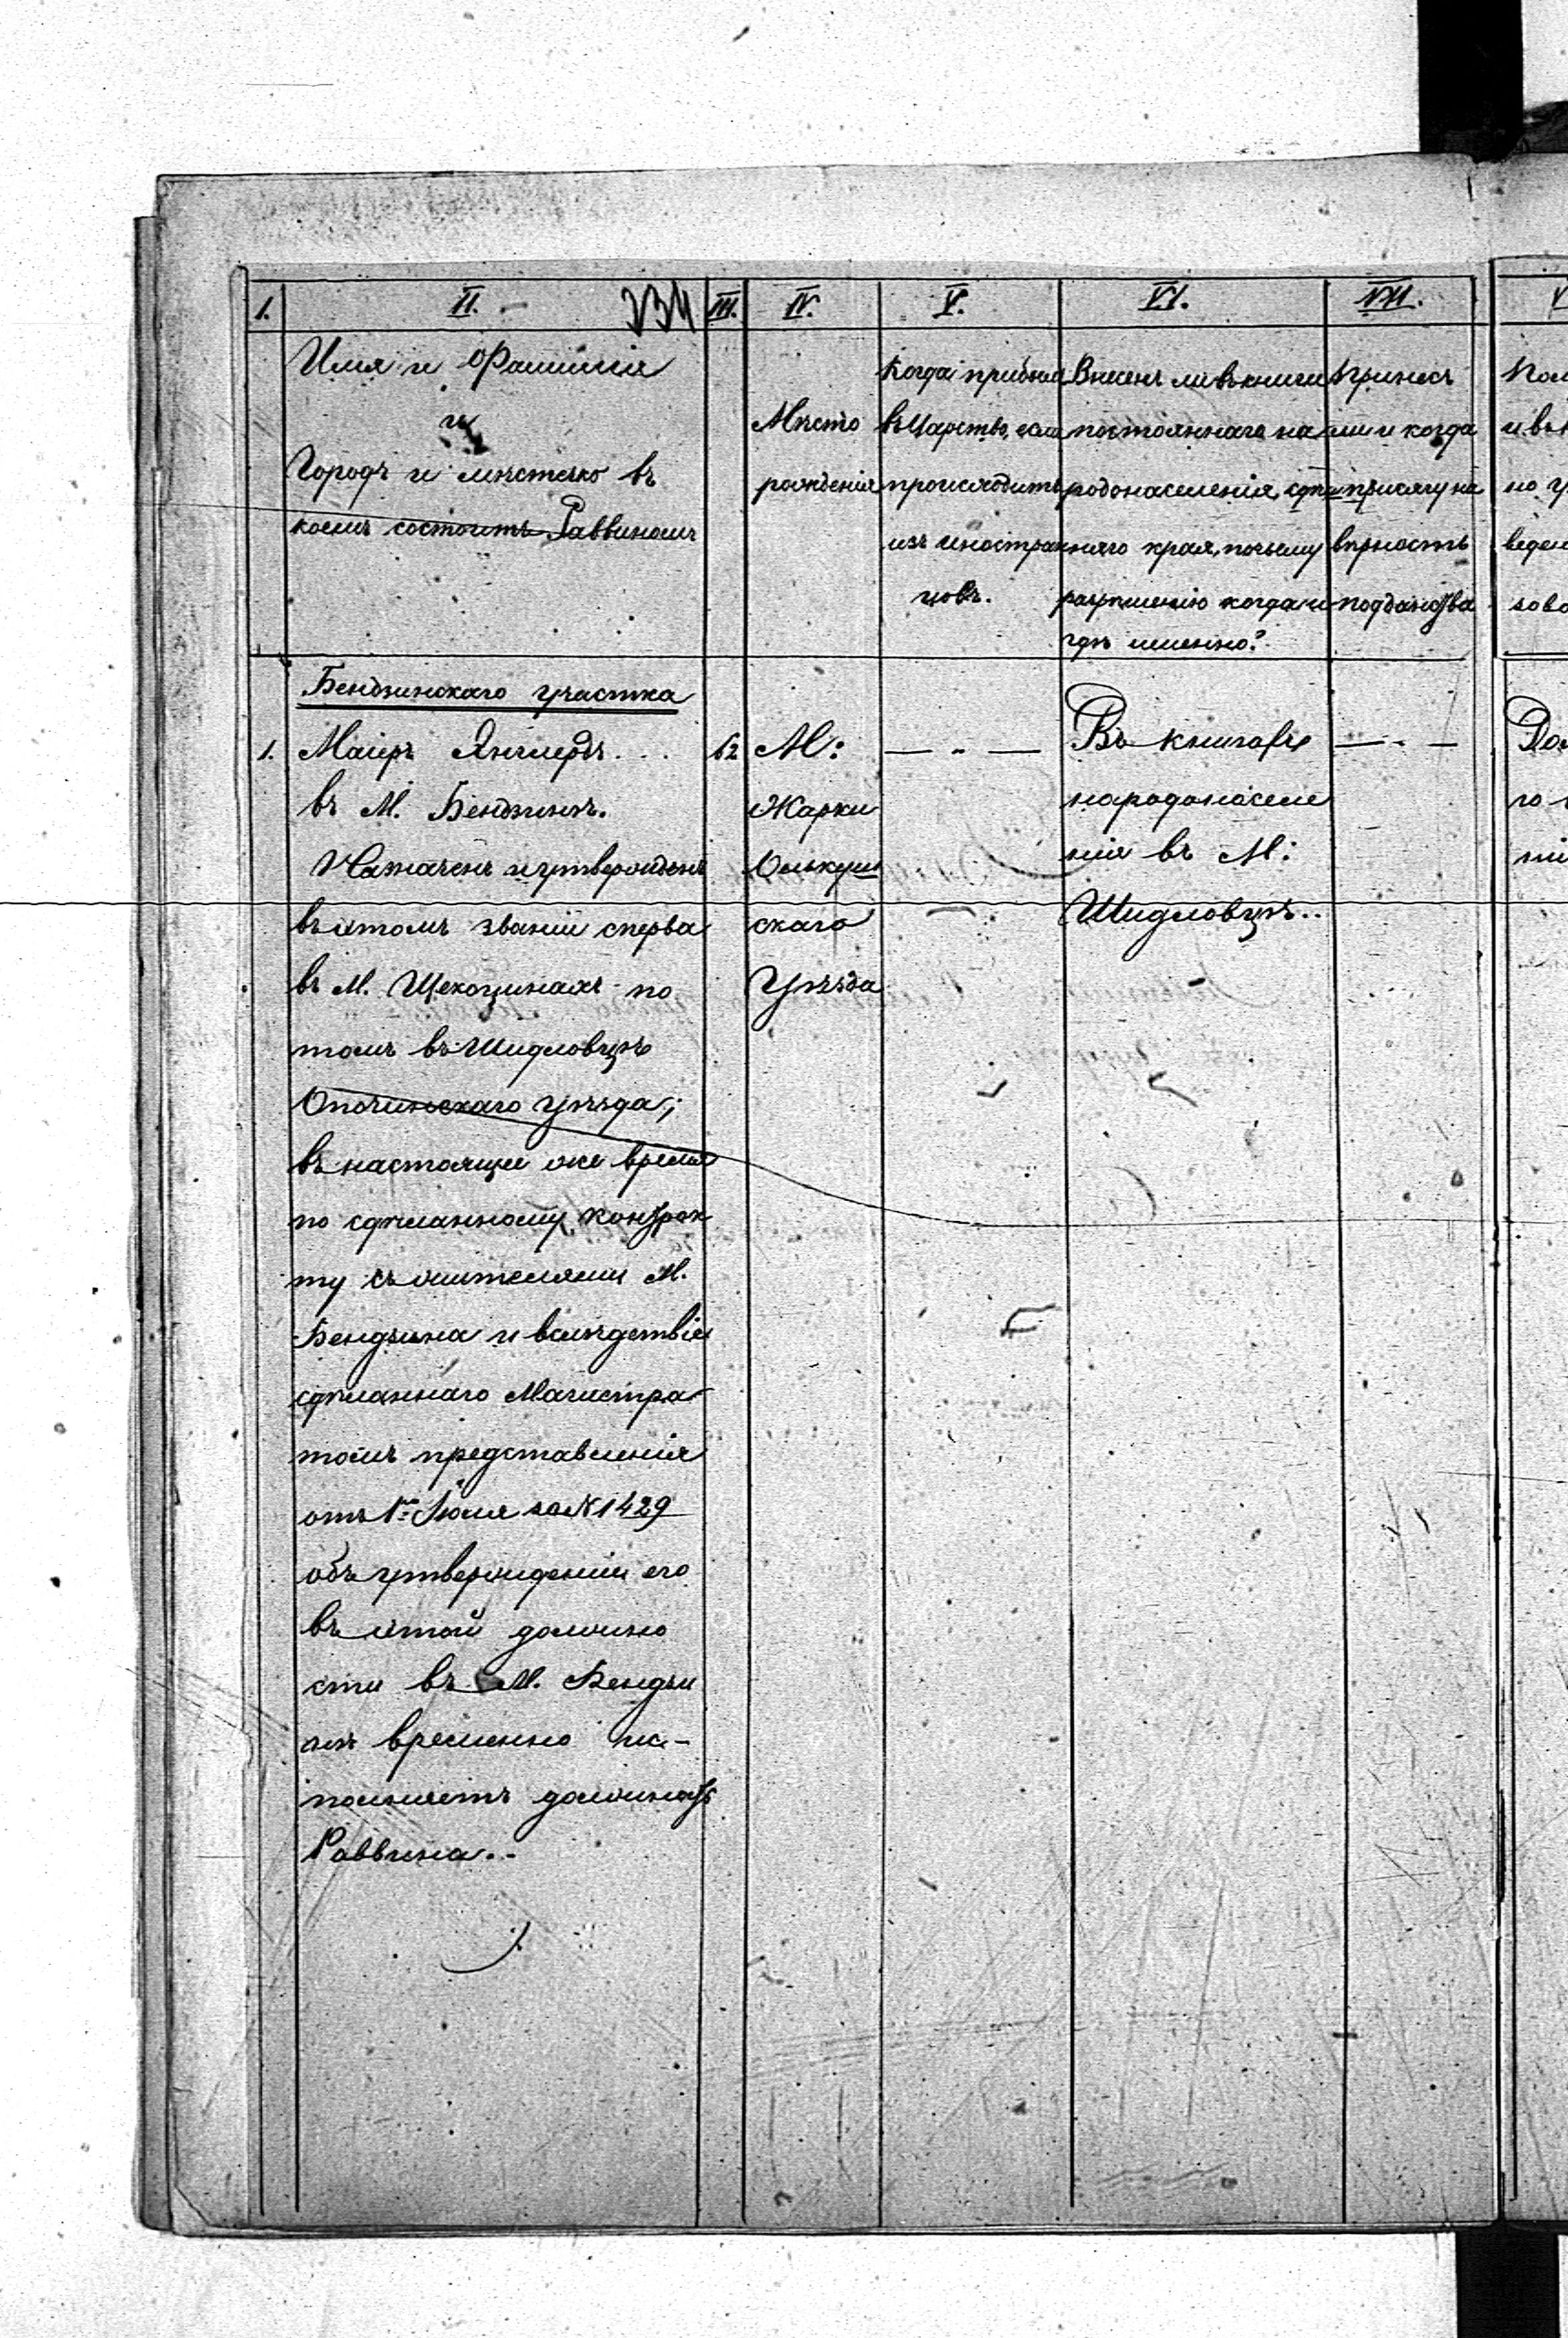 I. II. 334 III. IV. V. VI. VII.
Имя и Фамилія
и
Городъ и мѣстечко въ
коемъ состоитъ Раввиномъ
Мѣсто
рожденія
Когда прибылъ
въ Царство, если
происходитъ
изъ иностран
цовъ.
Внесенъ ли въ книги
постояннаго на
родонаселенія, сдѣш
няго края, почьему
разрѣшенію когда и
гдѣ именно?
Принесъ
ли и когда
присягу на
вѣрность
подданства
Бендзинскаго участка
1. Маіеръ Ингмердъ . . .
въ М. Бендзинѣ.
Назначенъ и утвержденъ
въ этомъ званіи сперва
въ М. Щекоцинахъ по
томъ въ Шидловцѣ
Опочинскаго уѣзда;
въ настоящее же время
по сдѣланному контрак
ту съ жителями М.
Бендзина и вслѣдствіе
сдѣланнаго Магистра
томъ представленія
отъ 1го Іюля за N 1429
объ утвержденіи его
въ этой должно
сти въ М. Бендзи
нѣ временно ис-
полняетъ должность
Раввина..
62
М:
Жарки
Олькуш
скаго
Уѣзда
— „ —
Въ книгахъ
народонаселе
нія въ М:
Шидловцѣ..
— „ —